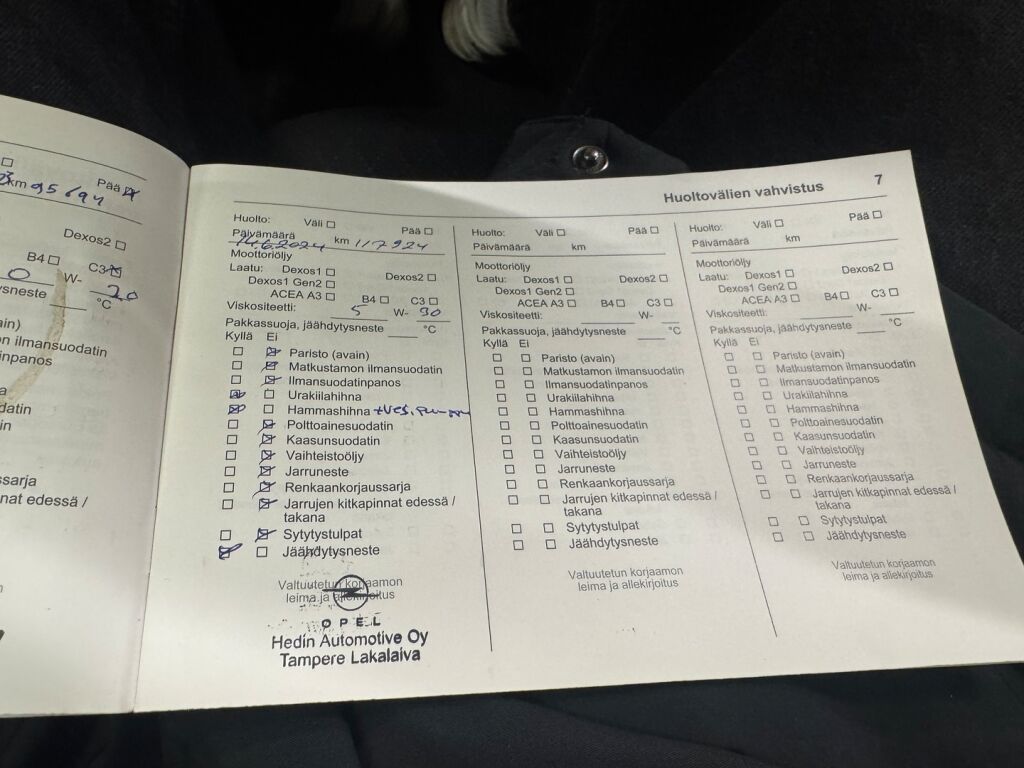 Pää
km 95694
Dexos2
B4 C3
0 W- 20
°C
n ilmansuodatin
edessä /
Huoltovälien vahvistus 7
Huolto: Väli Pää
Päivämäärä 14.6.2024 km 117924
Moottoriöljy
Laatu: Dexos1 Dexos2
Dexos1 Gen2
ACEA A3 B4 C3
Viskositeetti: 5 W- 30
Pakkassuoja, jäähdytysneste °C
Kyllä Ei
Paristo (avain)
Matkustamon ilmansuodatin
Ilmansuodatinpanos
Urakiilahihna
Hammashihna +ves.pumppu
Polttoainesuodatin
Kaasunsuodatin
Vaihteistoöljy
Jarruneste
Renkaankorjaussarja
Jarrujen kitkapinnat edessä /
takana
Sytytystulpat
Jäähdytysneste
Valtuutetun korjaamon
leima ja allekirjoitus
OPEL
Hedin Automotive Oy
Tampere Lakalaiva
Huolto: Väli Pää
Päivämäärä km
Moottoriöljy
Laatu: Dexos1 Dexos2
Dexos1 Gen2
ACEA A3 B4 C3
Viskositeetti: W-
Pakkassuoja, jäähdytysneste °C
Kyllä Ei
Paristo (avain)
Matkustamon ilmansuodatin
Ilmansuodatinpanos
Urakiilahihna
Hammashihna
Polttoainesuodatin
Kaasunsuodatin
Vaihteistoöljy
Jarruneste
Renkaankorjaussarja
Jarrujen kitkapinnat edessä /
takana
Sytytystulpat
Jäähdytysneste
Valtuutetun korjaamon
leima ja allekirjoitus
Huolto: Väli Pää
Päivämäärä km
Moottoriöljy
Laatu: Dexos1 Dexos2
Dexos1 Gen2
ACEA A3 B4 C3
Viskositeetti: W-
Pakkassuoja, jäähdytysneste °C
Kyllä Ei
Paristo (avain)
Matkustamon ilmansuodatin
Ilmansuodatinpanos
Urakiilahihna
Hammashihna
Polttoainesuodatin
Kaasunsuodatin
Vaihteistoöljy
Jarruneste
Renkaankorjaussarja
Jarrujen kitkapinnat edessä /
takana
Sytytystulpat
Jäähdytysneste
Valtuutetun korjaamon
leima ja allekirjoitus